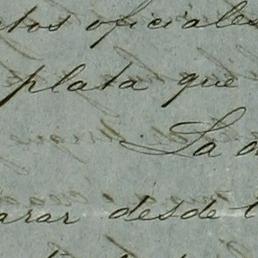 tos oficiales
plata que
La
arar desde